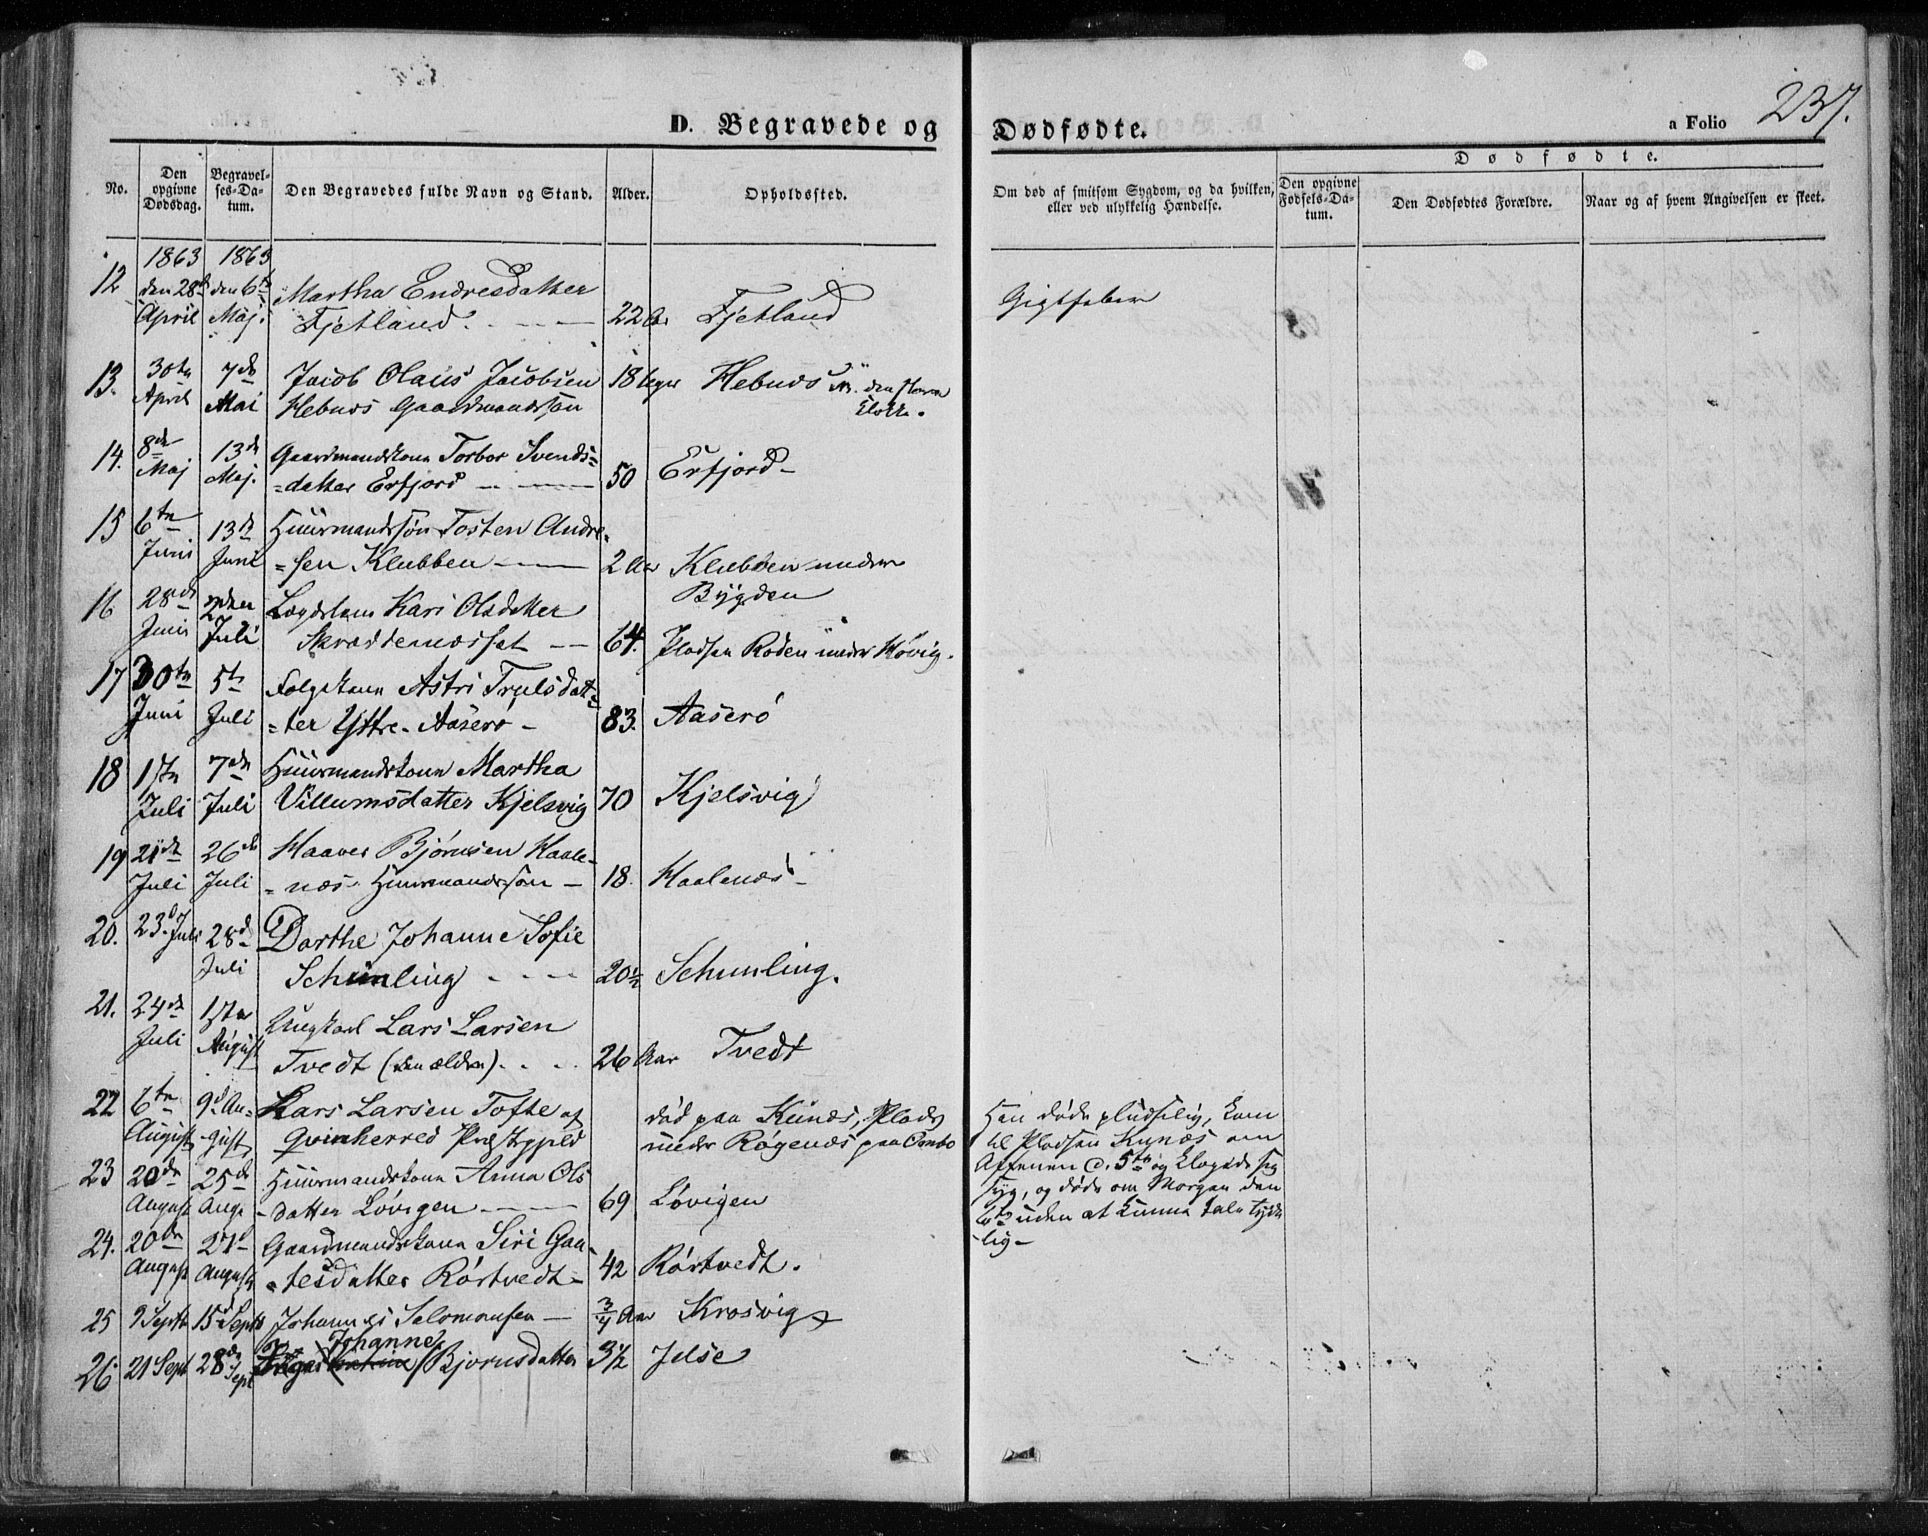 D. Begravede og Dødfødte.
a Folio 237.
No.
Den opgivne Dødsdag.
Begravel-
ses-Da-
tum.
Den Begravedes fulde Navn og Stand.
Alder.
Opholdssted.
Om død af smitsom Sygdom, og da hvilken,
eller ved ulykkelig Hændelse.
Dødfødte.
Den opgivne
Fødsels-Da-
tum.
Den Dødfødtes Forældre.
Naar og af hvem Angivelsen er skeet.
1863 1863
12 den 28de den 6te Martha Endresdatter
April Maj. Fjetland. 22 Aar Fjetland Gigtfeber
13. 30te 7de Jacob Olaus Jacobsen 18 Uger Hebnes
April Mai Hebnes Gaardmandssøn
14. 8de 13de Gaardmandskone Torbor Svends=
Maj Maj. =datter Erfjord 50 Erfjord
15 6te 13de Huusmandssøn Tosten Andre=
Juni Juni =sen Klubben 2 Aar Klubben under
Bygden
16 28de 2den Lægdslem Kari Olsdatter
Juni Juli Skrædernæsset 64. Pladsen Roden under Høvig.
17 30te 5te Folgekone Astri Trulsdat=
Juni Juli =ter Yttre Aaserø 83. Aaserø
18 1ste 7de Huusmandskone Martha
Juli Juli Villumsdatter Kjelsvig 70 Kjelsvig
19 21de 26de Haaver Bjørnsen Haale=
Juli Juli =næs Huusmandssøn 18. Haalenæs
20. 23d Juli 28d Dorthe Johanne Sofie
Juli Schünling 20½ Schunling.
21. 24de 1ste Ungkarl Lars Larsen
Juli August Tvedt (den ældre) 26 Aar Tvedt
22 6te 9d Au= Lars Larsen Tofte af død paa Kunæs, Plads
August gust Qvinherred Præstegjeld under Røgenæs paa Ombo
Han døde pludselig, kom
til Pladsen Kunæs om
Aftenen d. 5te og klagede sig
syg, og døde om Morgen den
6te uden at kunne tale tyde
lig
23 20de 25de Huusmandskone Anna Ols
August Augs =datter Løvigen 69 Løvigen
24. 20de 27d Gaardmandskone Siri Gau=
August August =tesdatter Rørtvedt 42 Rørtvedt.
25 9 Septb 15d Septb Johannes Salomonsen ¾ Aar Krosvig
Johanne
26. 21 Sept 28de Sept Bjørnsdatter 3½ Jelse